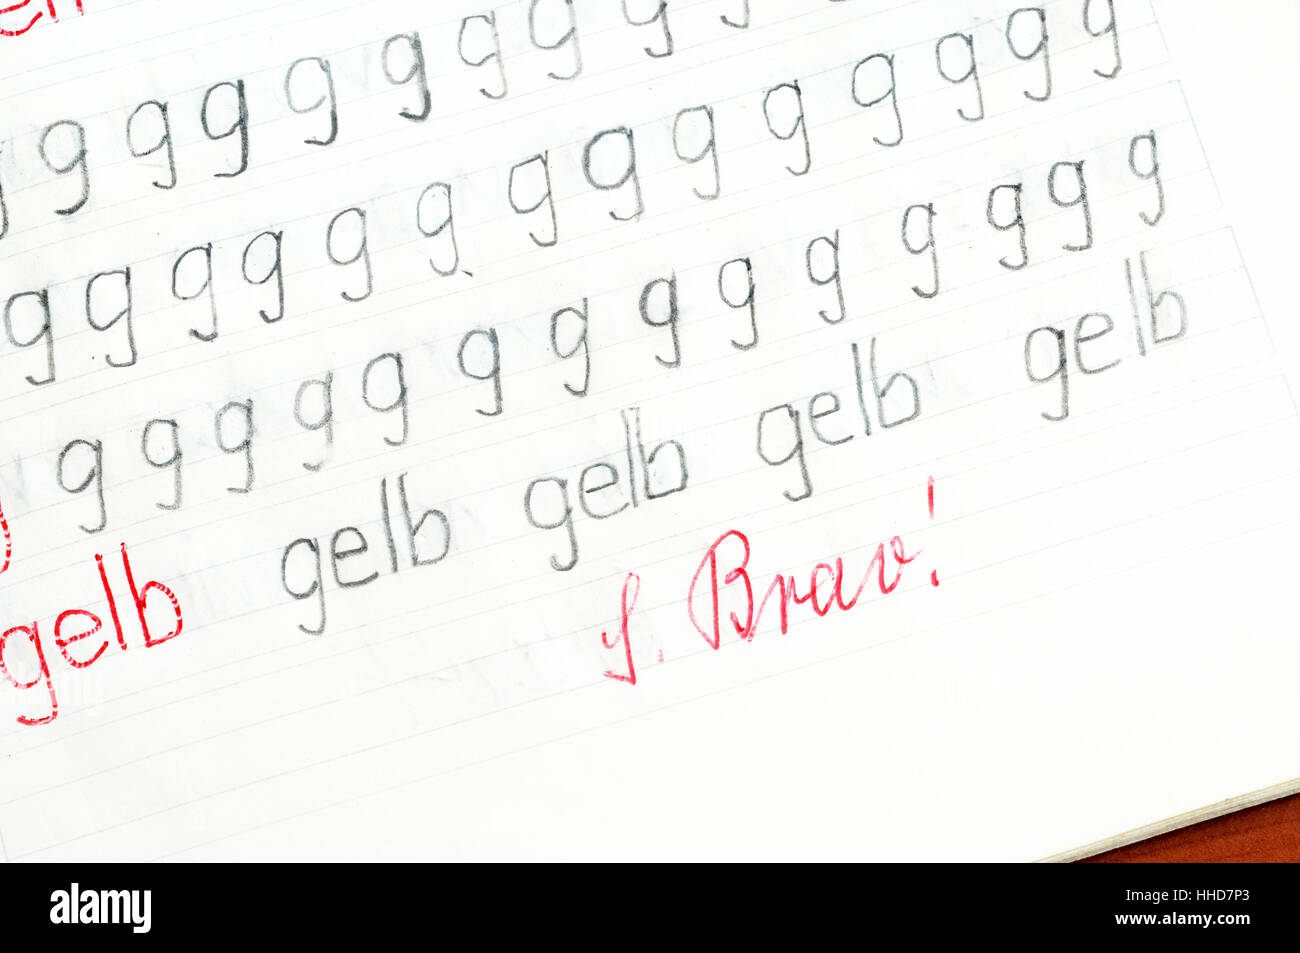 g g g g g g g g g
g g g g g g g g g g g g g g
g g g g g g g g g g g g g g
gelb gelb gelb gelb gelb
S. Brav!
alamy
alamy
Image ID: HHD7P3
www.alamy.com